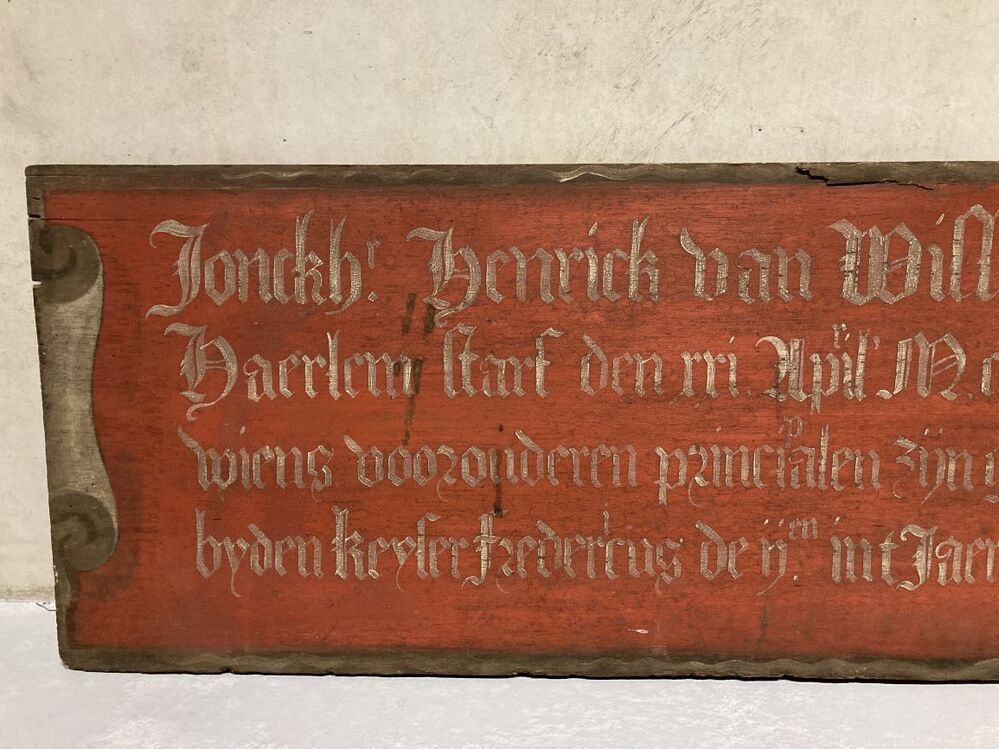 Jonckhr. Henrick van Will
Haerlem starf den xxi. Apijl' M.c
wiens vooronderen principalen zijn g
byden keyser fredericus de ijen. int Jaer